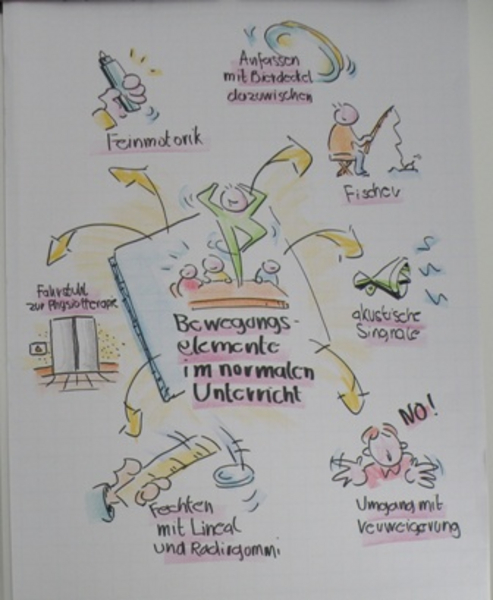 Anfassen
mit Bierdeckel
dazwischen
Feinmotorik
Fischer
Fahrstuhl
zur Physiotherapie
6
akustische
Singnale
Bewegungs-
elemente
im normalen
Unterricht
NO!
Fechten
mit Lineal
und Radirgommi
Umgang mit
Verweigerung